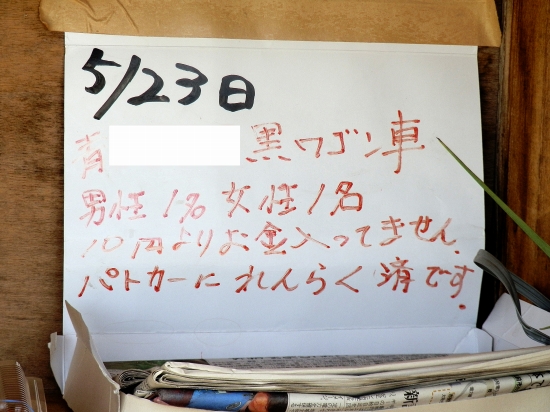 5/23日
青 黒ワゴン車
男性1名 女性1名
10円よりお金入ってません.
パトカーにれんらく済です.